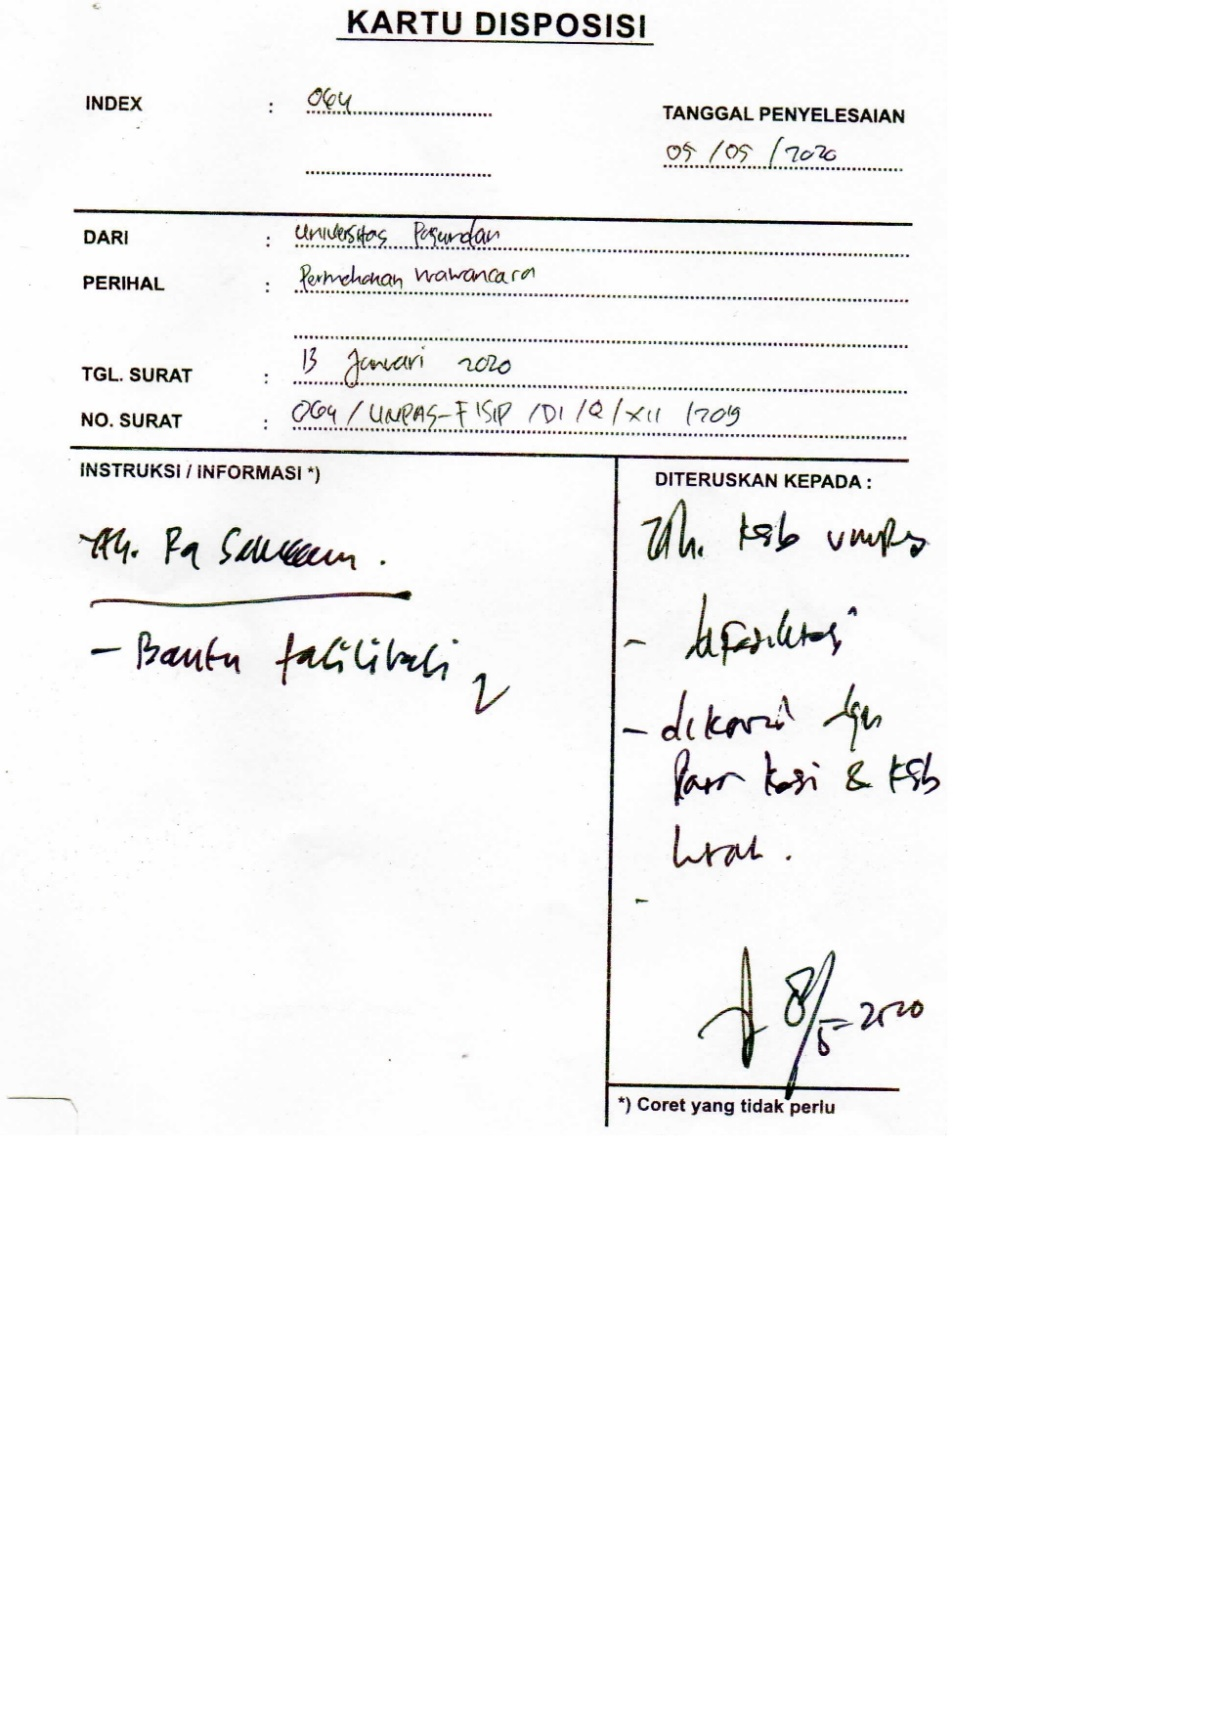 KARTU DISPOSISI
INDEX : 064
TANGGAL PENYELESAIAN
05 / 05 / 2020
DARI : Universitas Pasundan
PERIHAL : Permohonan wawancara
TGL. SURAT : 13 Januari 2020
NO. SURAT : 064 / UNPAS-FISIP / D1 / Q / XII / 2019
INSTRUKSI / INFORMASI *)
Pa
- Bantu fasilitasi
DITERUSKAN KEPADA :
Yth. Ksb
- difasilitasi
- dgn
Para Kasi & Ksb
8/5-2020
*) Coret yang tidak perlu